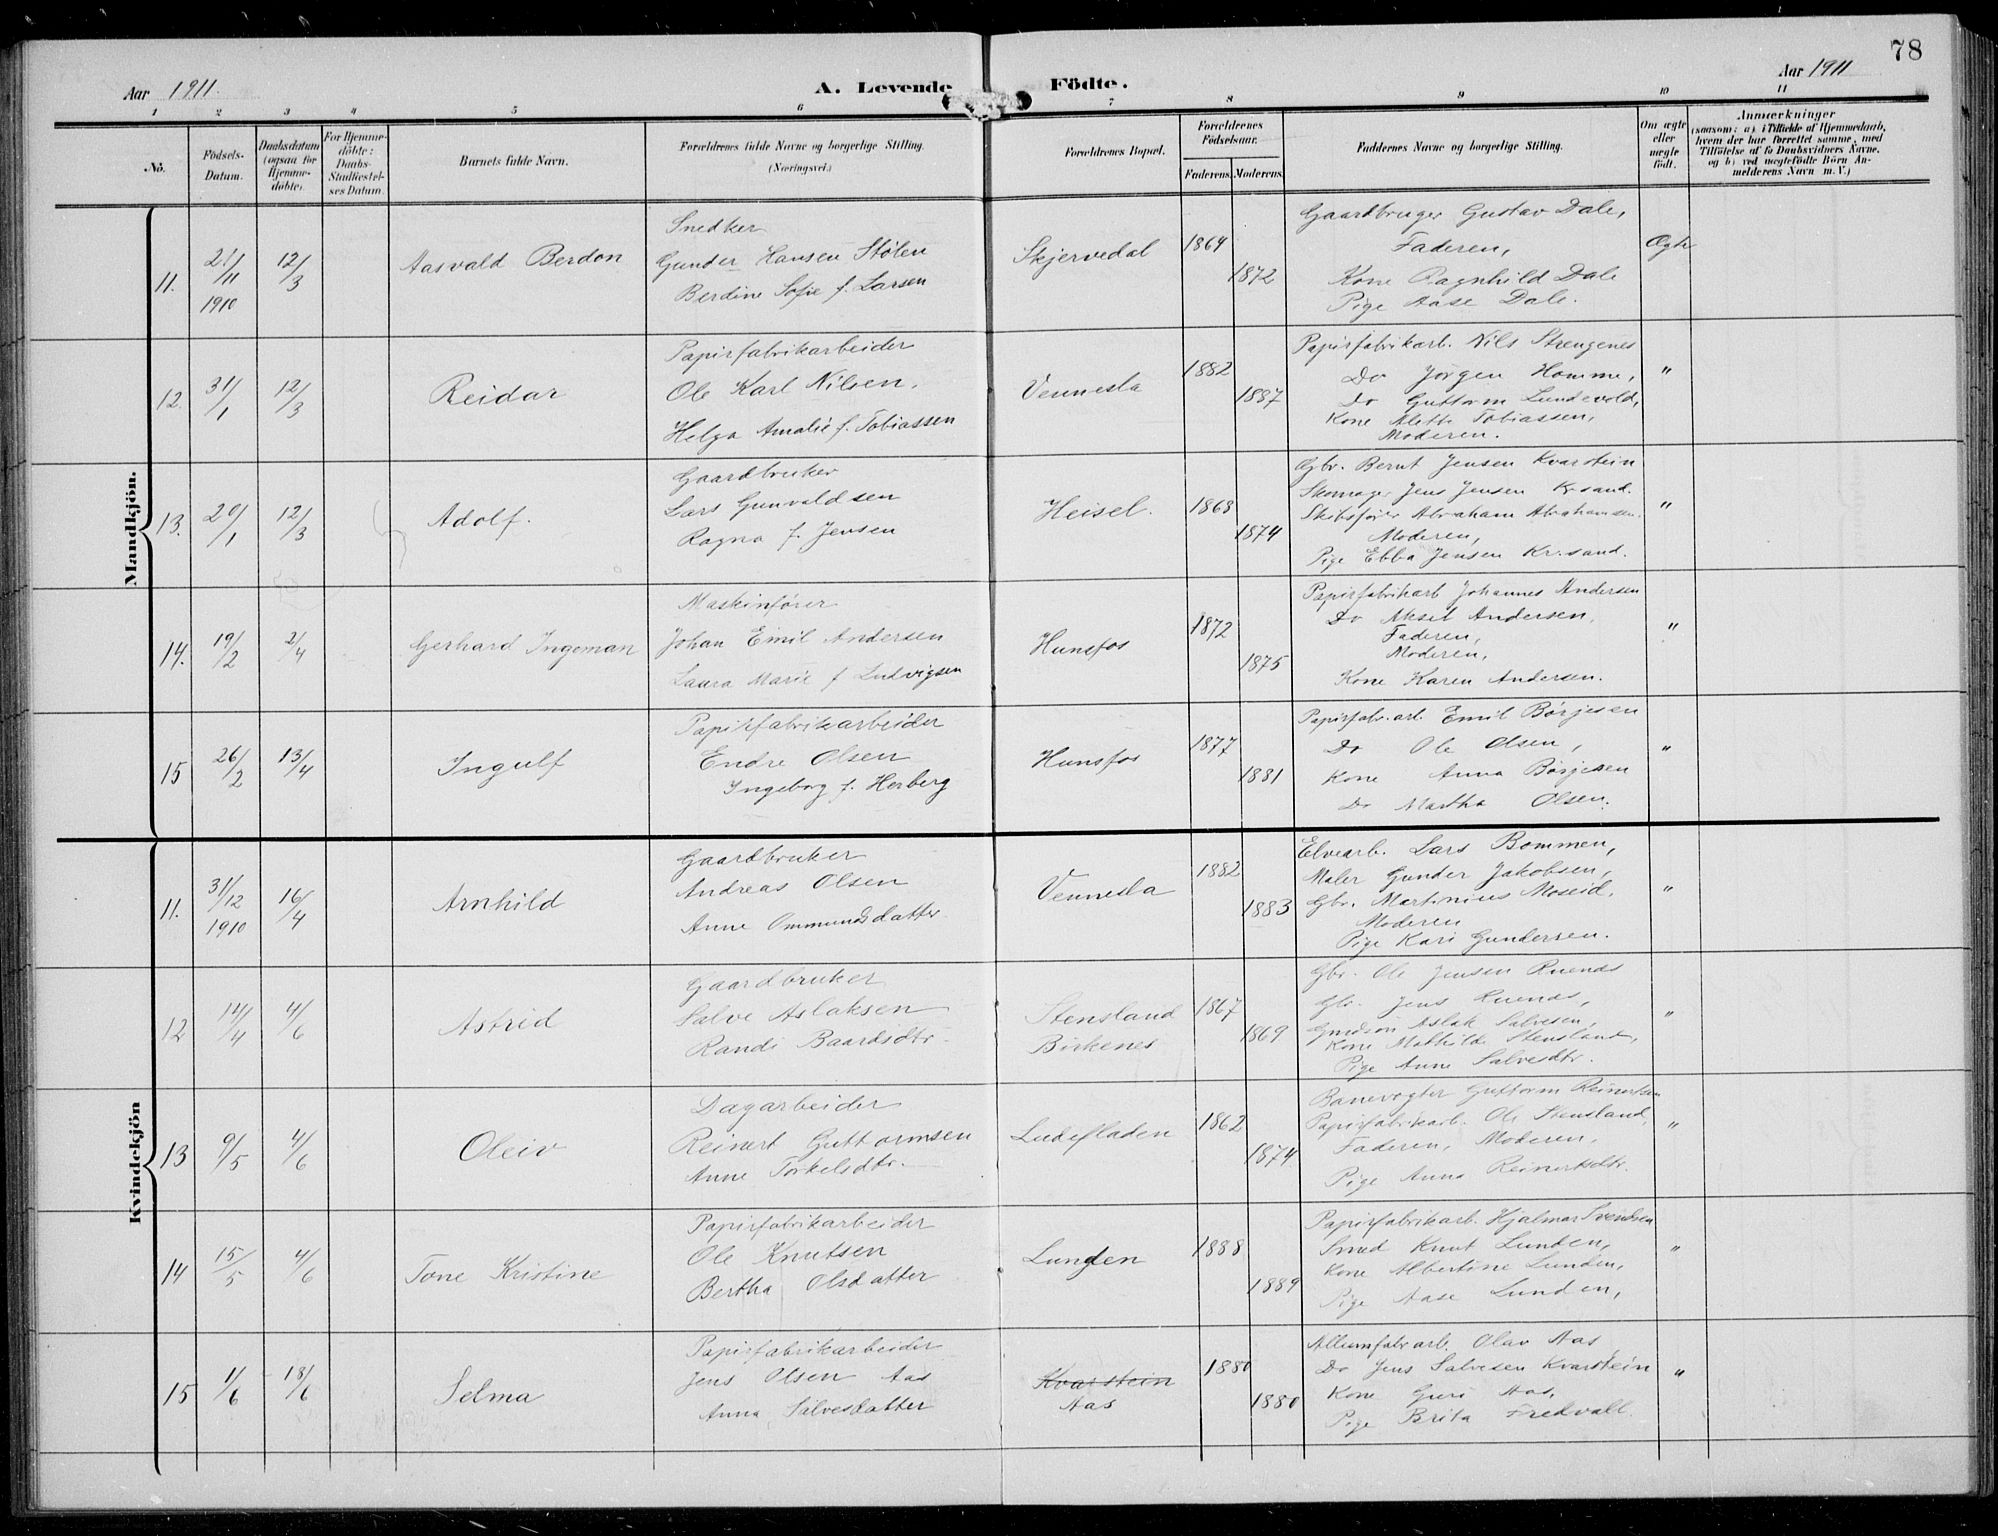 78
Aar 1911.
A. Levende Födte.
Aar 1911
1 2 3 4 5 6 7 8 9 10 11
No.
Födsels-Datum.
Daabsdatum (ogsaa for Hjemme-döbte).
For Hjemme-döbte: Daabs-Stadfæstel-ses Datum.
Barnets fulde Navn.
Forældrenes fulde Navne og borgerlige Stilling.
(Næringsvei.)
Forældrenes Bopæl.
Forældrenes Födselsaar.
Faderens. Moderens.
Faddernes Navne og borgerlige Stilling.
Om ægte eller uægte født.
Anmærkninger
(saasom: a) i Tilfælde af Hjemmedaab,
hvem der har forrettet samme, med
Tilföielse af to Daabsvidners Navne,
og b) ved uægtefödte Börn An-
melderens Navn m. V.)
Mandkjön.
11. 21/11 1910 12/3 Aasvald Berdon
Snedker
Gunder Hansen Stølen
Berdine Sofie f. Larsen
Skjervedal 1864 1872
Gaardbruger Gustav Dale,
Faderen,
Kone Ragnhild Dale
Pige Aase Dale.
Ægte
12. 31/1 12/3 Reidar
Papirfabrikarbeider
Ole Karl Nilsen.
Helga Amalie f. Tobiassen
Vennesla 1882 1887
Papirfabrikarb. Nils Strengenes
Do Jørgen Homme,
Do Guttorm Lundevold,
Kone Alette Tobiassen,
Moderen.
"
13. 20/1 12/3 Adolf.
Gaardbruker
Lars Gunvaldsen
Ragna f. Jensen
Heisel. 1868 1874
Gbr. Bernt Jensen Kvarstein
Skomager Jens Jensen Kr.sand.
Skibsfører Abraham Abrahamsen.
Moderen,
Pige Ebba Jensen Kr.sand.
"
14. 19/2 2/4 Gerhard Ingeman
Maskinfører
Johan Emil Andersen
Laura Marie f Ludvigsen
Hunsfos 1872 1875
Papirfabrikarb Johannes Andersen
Do Aksel Andersen,
Faderen,
Moderen,
Kone Karen Andersen.
"
15 26/2 13/4 Ingulf
Papirfabrikarbeider
Endre Olsen
Ingeborg f. Herberg
Hunsfos 1877 1881
Papirfabr.arb. Emil Börjesen
Do Ole Olsen,
Kone Anna Börjesen
Do Martha Olsen.
"
Kvindekjön
11. 31/12 1910 16/4 Arnhild
Gaardbruker
Andreas Olsen
Anne Ommundsdatter
Vennesla 1882 1883
Elvearb. Lars Bommen,
Maler Gunder Jakobsen,
Gbr. Martinius Moseid,
Moderen
Pige Kari Gundersen.
"
12 14/4 4/6 Astrid
Gaardbruker
Salve Aslaksen
Randi Baardsdtr.
Stensland
Birkenes 1867 1869
Gbr. Ole Jensen Ruends
Gbr. Jens Ruends,
Aslak Salvesen,
Kone Mathilde Stensland,
Pige Anne Salvesdtr.
"
13 9/5 4/6 Oleiv
Dagarbeider
Reinert Guttormsen
Anne Torkelsdtr.
Ludefladen 1862 1874
Banevogter Guttorm Reinertsen
Papirfabrikarb. Ole Stensland,
Faderen, Moderen,
Pige Anna Reinertsdtr.
"
14 15/5 4/6 Tone Kristine
Papirfabrikarbeider
Ole Knutsen
Bertha Olsdatter
Lunden 1888 1889
Papirfabrikarb. Hjalmar Svendsen
Smed Knut Lunden,
Kone Albertine Lunden,
Pige Aase Lunden,
"
15 1/6 18/6 Selma
Papirfabrikarbeider
Jens Olsen Aas
Anna Salvesdatter
Kvarstein
Aas 1880 1880
Allumfabr.arb. Olav Aas,
Do Jens Salvesen Kvarstein
Kone Guri Aas,
Pige Brita Fredvall.
"